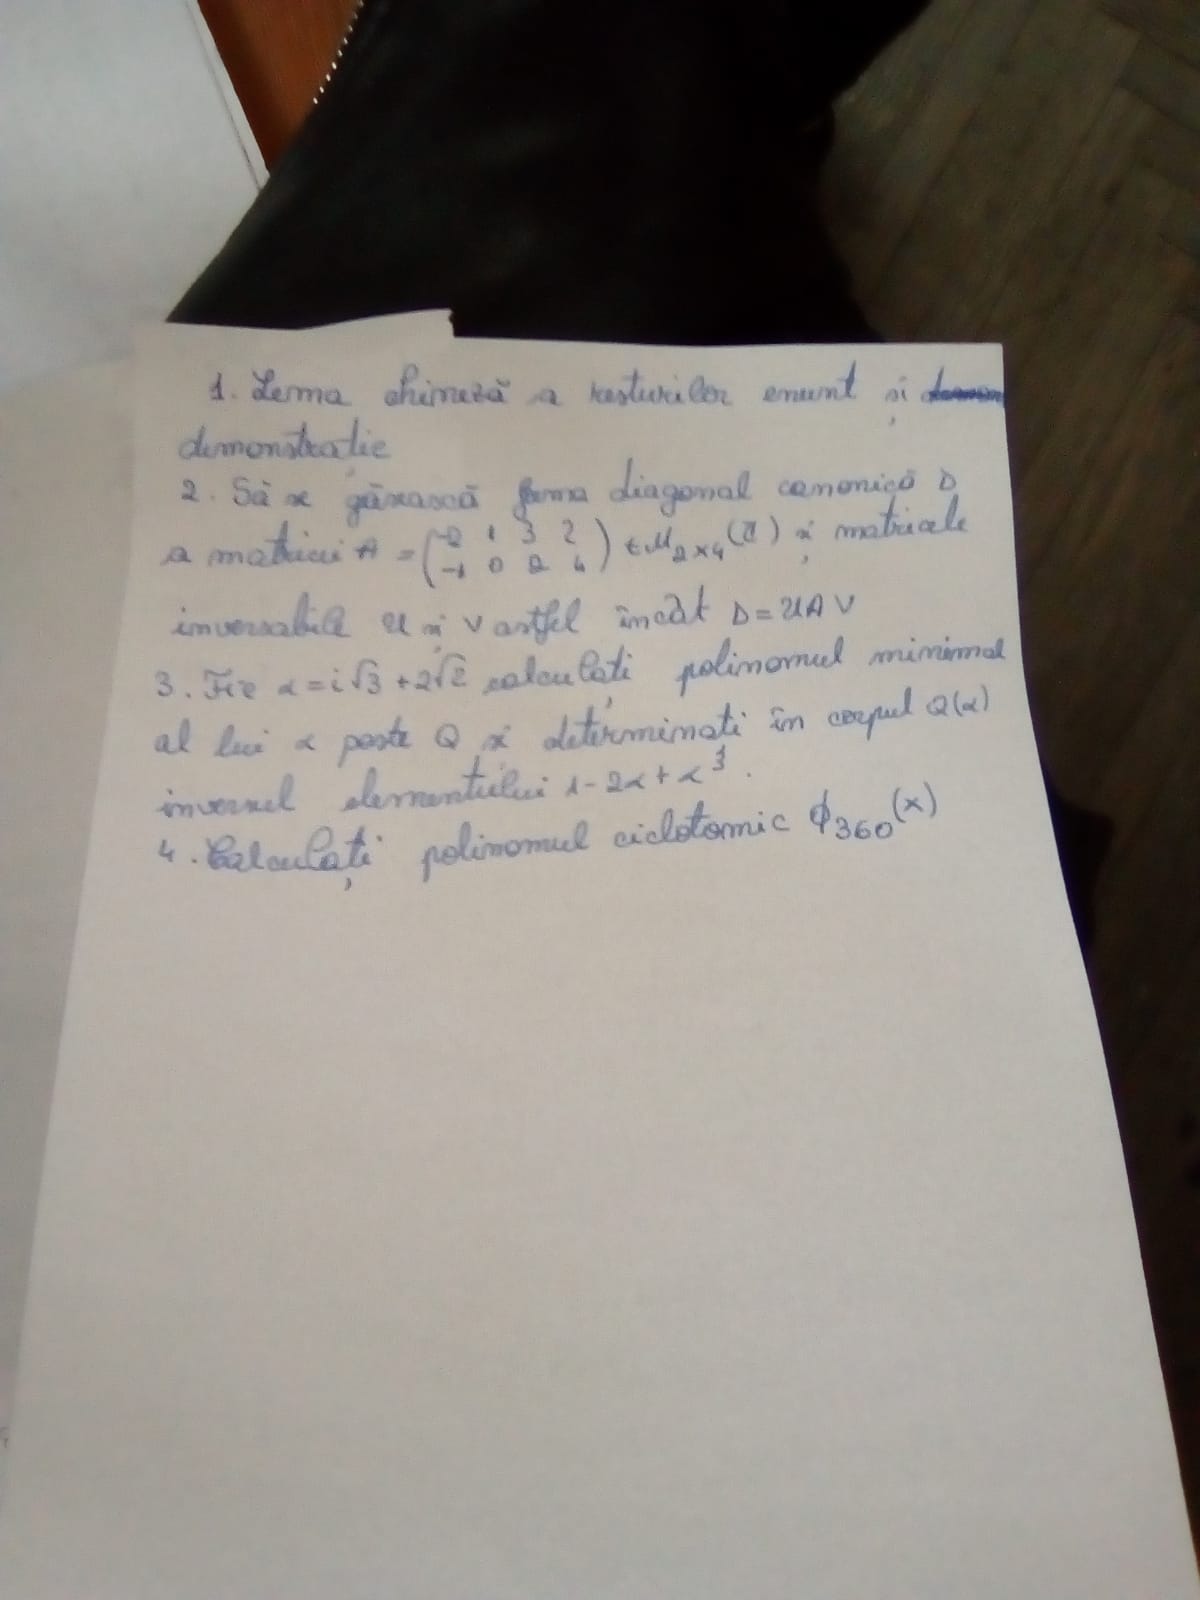 1. Lema chineză a resturilor enunt și
demonstratie
2. Să se găsească forma diagonal canonică D
a matricii A = (-2 1 3 2 / -1 0 2 4) ∈ M₂ₓ₄(Z) și matricele
inversabile U și V astfel încât D = UAV
3. Fie α = i√3 + 2√2 calculați polinomul minimal
al lui α peste Q și determinati în corpul Q(α)
inversul elementului 1 - 2α + α³.
4. Calculați polinomul ciclotomic ϕ₃₆₀(x)